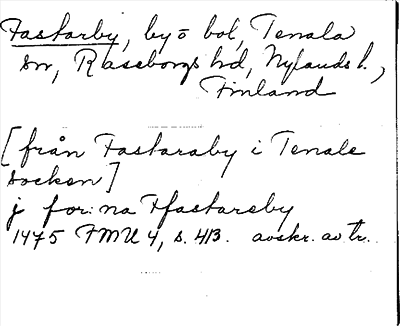 Fastarby, by o bol, Tenala
sn, Raseborgs hd, Nylands l.,
Finland
[från Fastaraby i Tenale
socken]
j for:na Ffastareby
1475 FMU 4, s. 413. avskr. av tr.